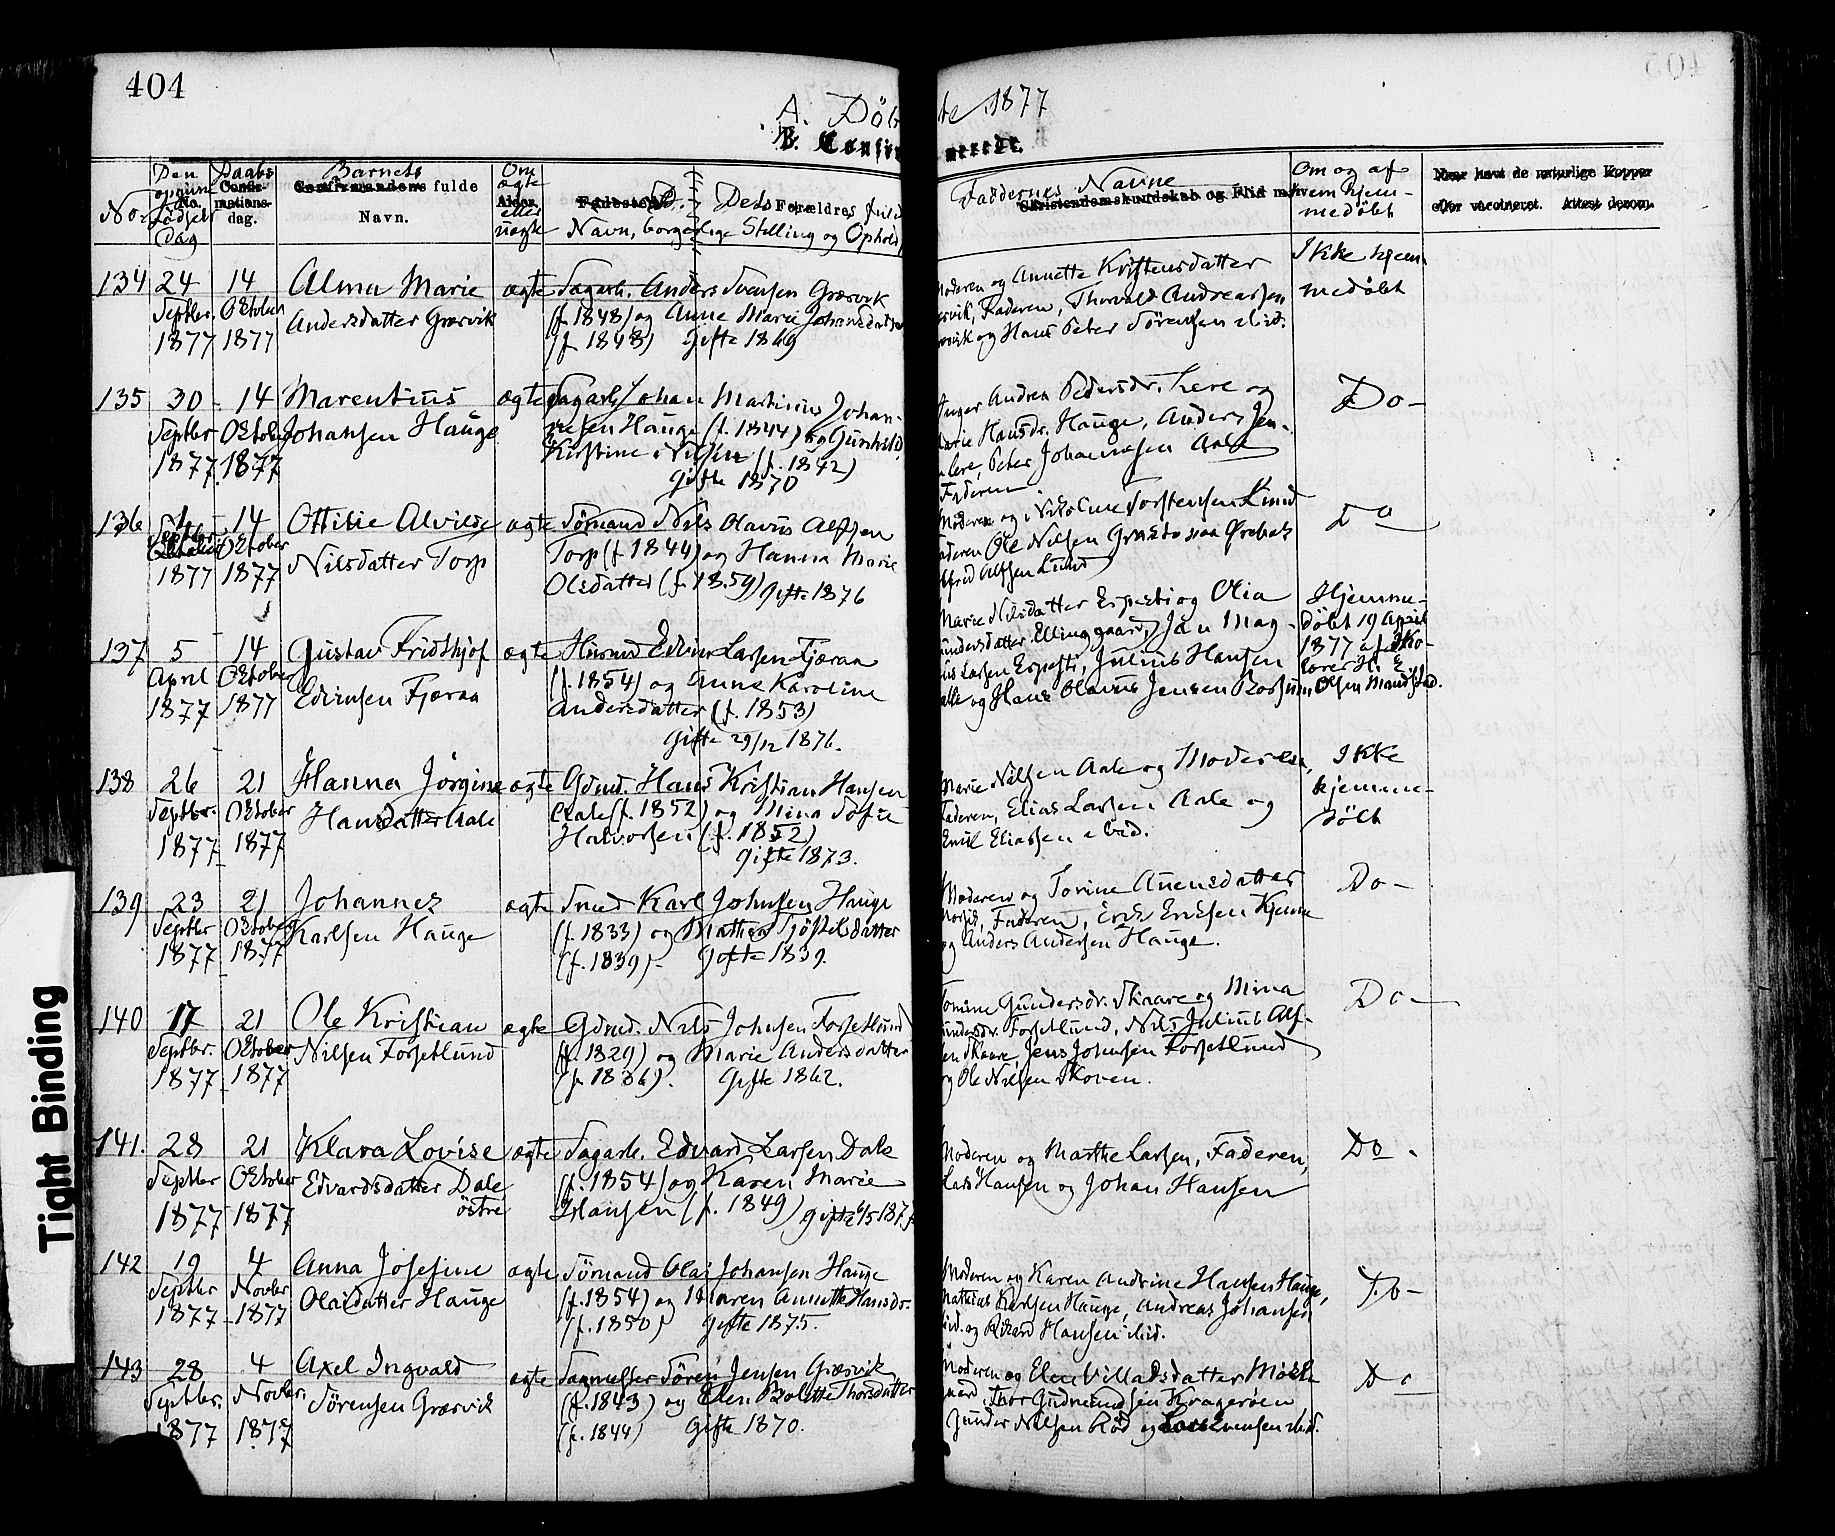 404
A. Døb te 1877
B. Confir merede.
No.
Den opgivne Fødsels Dag
No.
Daabs
Confirmations-
dag.
Barnets
Confirmandens fulde
Navn.
Om ægte eller uægte
Alder.
Fødested.
D. Dets Forældres fulde
Navn, borgerlige Stilling og Ophold
Faddernes Navne
Christendomskundskab og Flid m.
Om og af hvem hjem-
medøbt
Naar havt de naturlige Kopper
eller vaccineret. Attest derom.
134 24 Septbr. 1877
14 Oktober 1877
Alma Marie
Andersdatter Græsvik
ægte
Sagarb. Anders Svensen Græsvik
(f. 1848) og Anne Marie Johansdatter
(f. 1848) Gifte 1869
Moderen og Annette Kristensdatter
Græsvik, Faderen, Thorvald Andreassen
Græsvik og Hans Peter Sørensen ibid.
Ikke hjem-
medøbt
135 30 Septbr 1877
14 Oktober 1877
Marentius
Johansen Hauge
ægte
Sagarb. Johan Martinius Johan-
nesen Hauge (f. 1844) og Gunhild
Kristine Nilsen (f. 1842)
Gifte 1870
Inger Andrea Pedersdr. Lere og
Marie Hansdr. Hauge, Anders Jen-
Lere, Peter Johannesen Aale
Faderen
Do-
136 4 Septbr 1877
14 Oktober 1877
Ottilie Alvilde
Nilsdatter Torp
ægte
Sømand Nils Olavus Alfsen
Torp (f. 1844) og Hanna Marie
Olsdatter (f. 1859) Gifte 1876
Moderen og Nikoline Torstensen Lund
Faderen Ole Nilsen
Alfred Alfsen Lund
Do
137 5 April 1877
14 Oktober 1877
Gustav Fridthjof
Edvinsen Fjæraa
ægte
Husmd Edvin Larsen Fjæraa
(f. 1854) og Anne Karoline
Andersdatter (f. 1853)
Gifte 29/12 1876.
Marie Nilsdatter Espesti og Olia
Gundersdatter Ellinggaard, Jan Mag-
nus Larsen Espesti, Julius Hansen
og Hans Olavus Jensen
Hjemme-
døbt 19 April
1877 af Sko-
lærer H. E.
Olsen
138 26 Septbr. 1877
21 Oktober 1877
Hanna Jørgine
Hansdatter Aale
ægte
Gdmd. Hans Kristian Hansen
Aale (f. 1852) og Mina Sofie
Halvorsen (f. 1852)
Gifte 1873.
Marie Nilsen Aale og Moderen,
Faderen, Elias Larsen Aale og
Emil Eliassen ibid.
Ikke
hjemme-
døbt
139 23 Septbr 1877
21 Oktober 1877
Johannes
Karlsen Hauge
ægte
Smed Karl Johnsen Hauge
(f. 1833) og Mathea Tjøstelsdatter
(f. 1839)- Gifte 1839.
Moderen og Torine Auensdatter
Faderen, Erik Eriksen Kjenne
og Anders Andersen Hauge.
Do-
140 17 Septbr. 1877
21 Oktober 1877
Ole Kristian
Nilsen Forsetlund
ægte
Gdmd. Nils Johnsen Forsetlund
(f. 1829) og Marie Andersdatter
(f. 1836). Gifte 1862.
Tomine Gundersdr. Skaare og Mina
Gundersdr. Forsetlund, Nils Julius Alf-
sen Skaare, Jens Johnsen Forsetlund
og Ole Nilsen Skoven.
Do-
141. 28 Septbr 1877
21 Oktober 1877
Klara Lovise
Edvardsdatter Dale
østre
ægte
Sagarb. Edvard Larsen Dale
(f. 1854) og Karen Marie
Hansen (f. 1849) gifte 6/5 187
Moderen og Marthe Larsen, Faderen,
Lars Hansen og Johan Hansen
Do.
142 19 Septbr 1877
4 Novbr 1877
Anna Josefine
Olaidatter Hauge
ægte
Sømand Olai Johansen Hauge
(f. 1854) og Maren Annette Hansdr.
(f. 1850) gifte 1875.
Moderen og Karen Andrine Hansen Hauge,
Mathias Karlsen Hauge, Andreas Johansen
ibid. og Rikard Hansen ibid.
Do-
143 28 Septbr. 1877
4 Novbr. 1877
Axel Ingvald
Sørensen Græsvik
ægte
Sagmester Søren Jensen Græsvik
(f. 1843) og Elen Bolette Thorsdatter
(f. 1844) Gifte 1870.
Moderen og Elen Villadsdatter
Thor Gudmundsen Kragerøen
Gunder Nilsen Rød og Lars Evensen ibid.
Do
Tight Binding